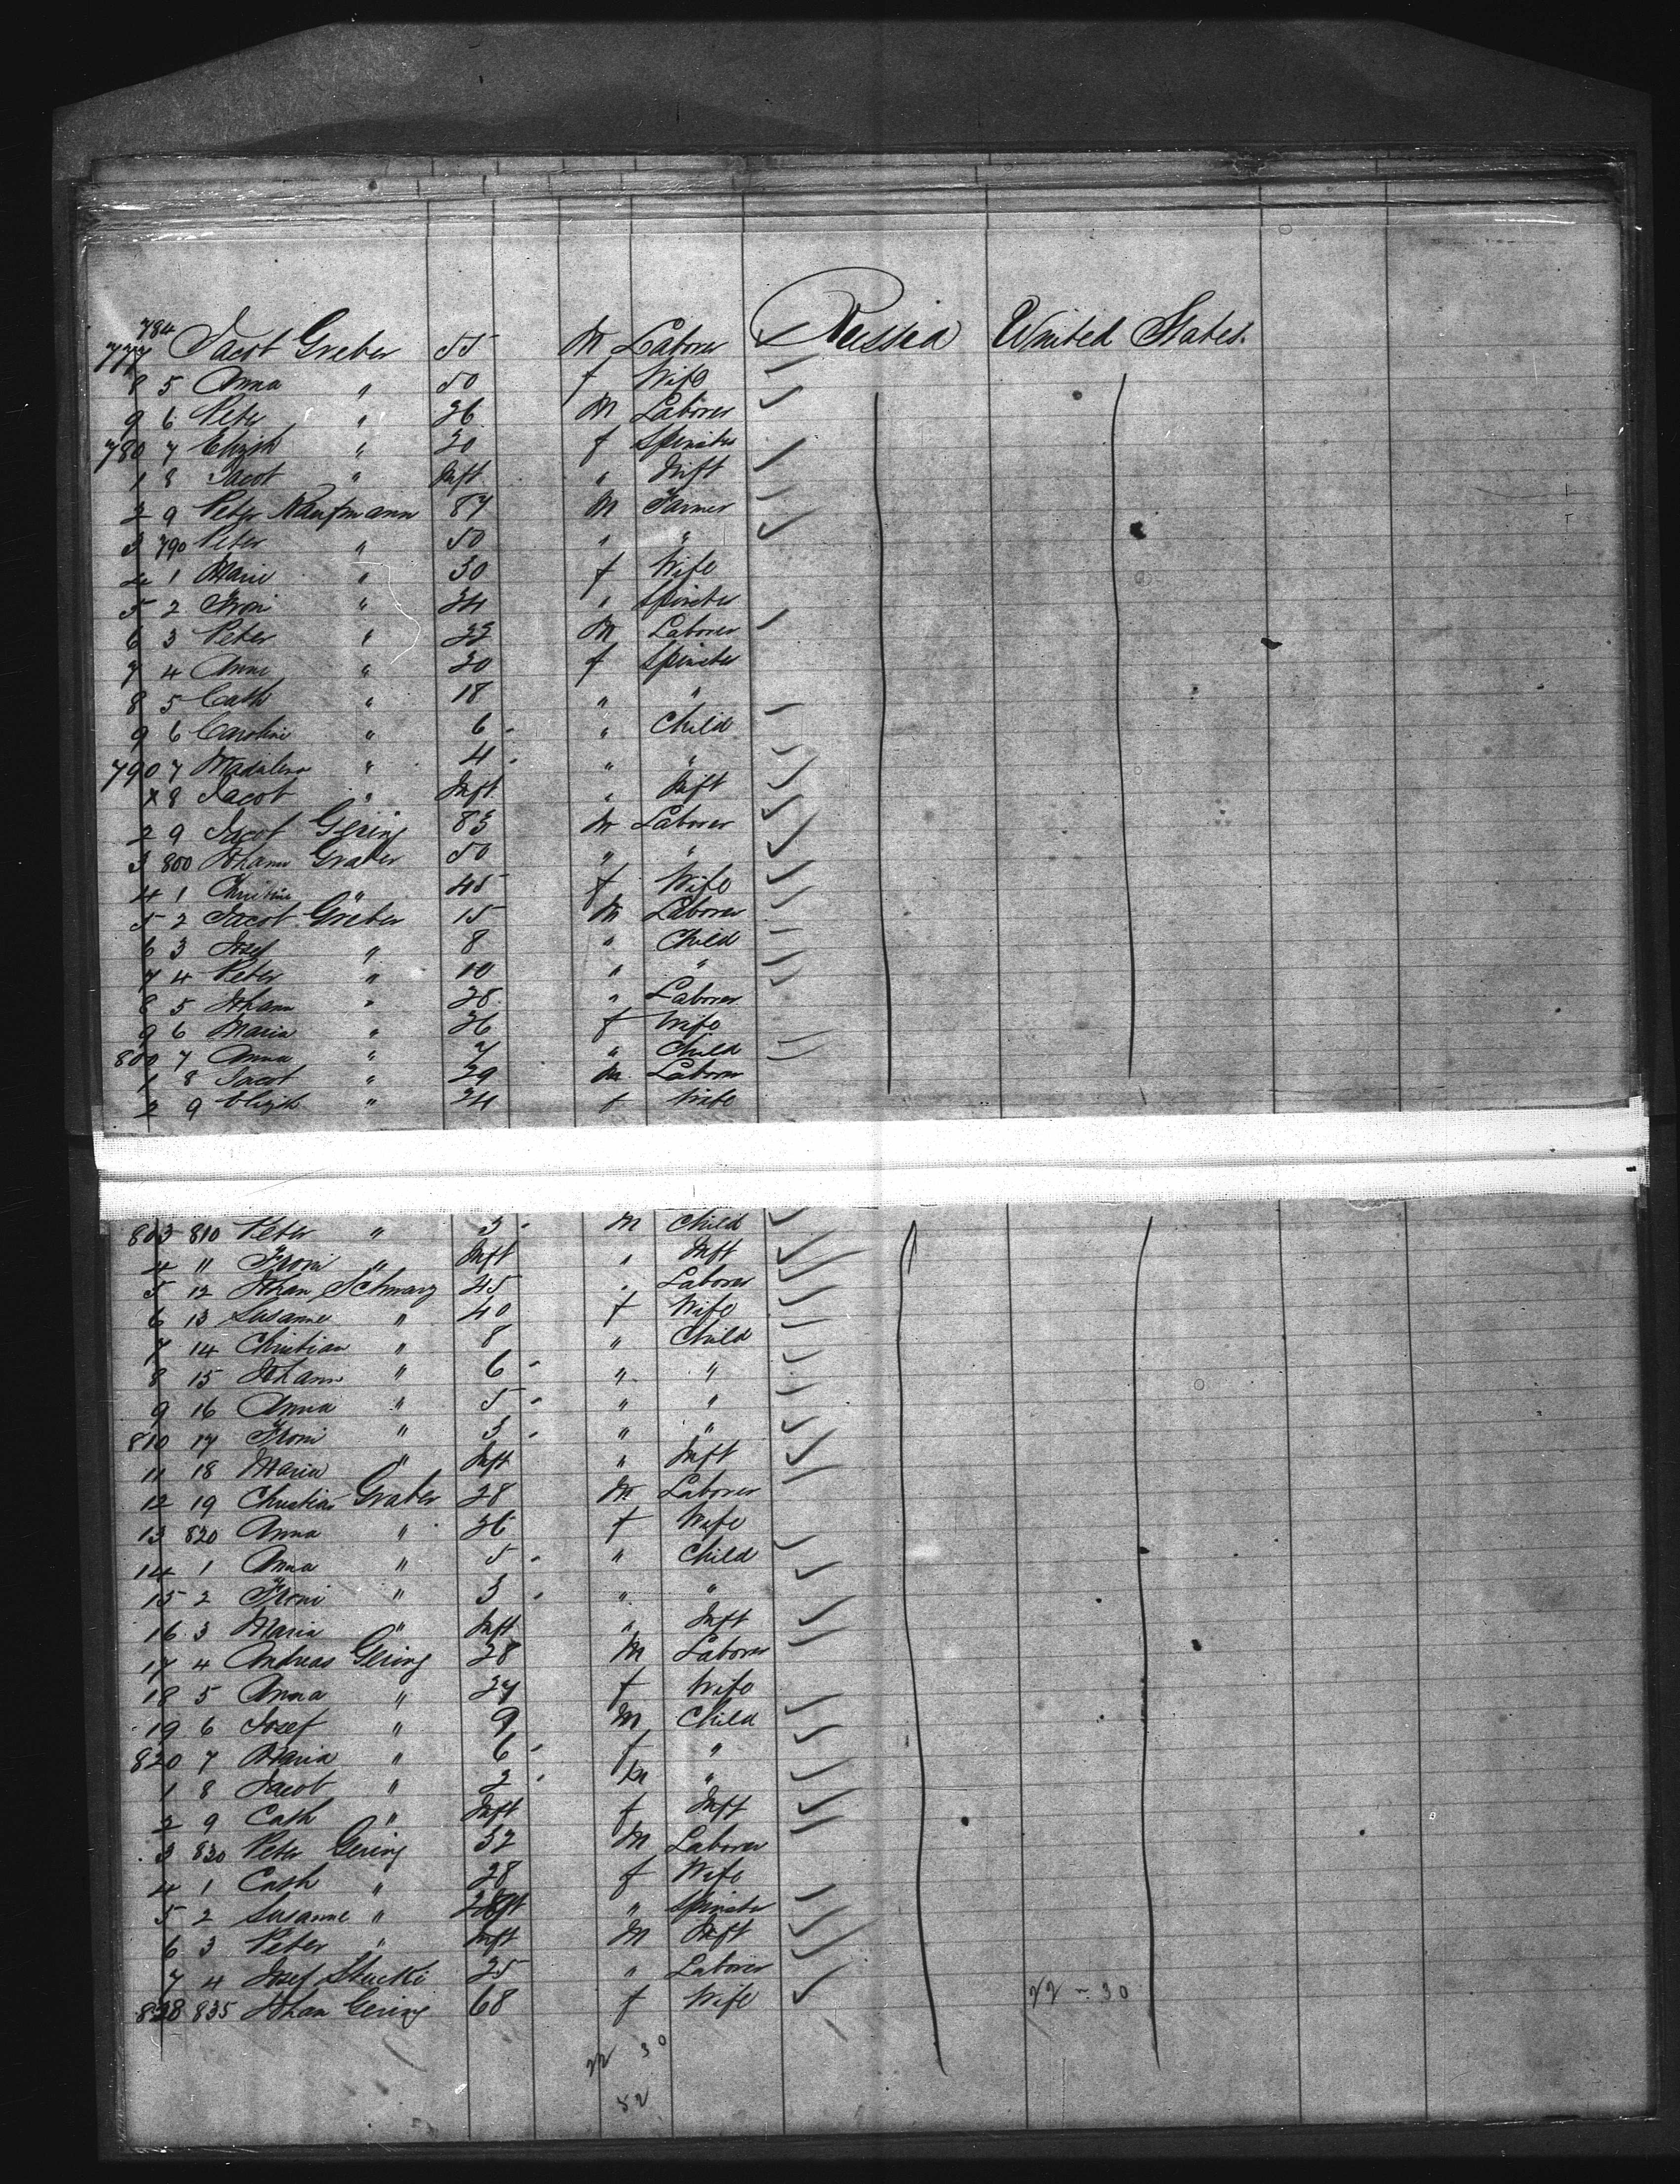 784
777 Jacob Greber 55 M Laborer Russia United States.
8 5 Anna " 50 f Wife
9 6 Peter " 26 M Laborer
780 7 Elizth " 20 f Spinster
1 8 Jacob " Inft " Inft
2 9 Peter Kaufmann 87 M Farmer
3 790 Peter " 50 " "
4 1 Marie " 30 f Wife
5 2 Froni " 24 " Spinster
6 3 Peter " 22 M Laborer
7 4 Anna " 20 f Spinster
8 5 Cath " 18 " "
9 6 Caroline " 6 - " Child
790 7 Madalena " 4 - " "
1 8 Jacob " Inft " Inft
2 9 Jacob Gering 83 M Laborer
3 800 Johann Graber 50 " "
4 1 Christina " 45 f Wife
5 2 Jacob Greber 15 M Laborer
6 3 Josef " 8 " Child
7 4 Peter " 10 " "
8 5 Johann " 28 " Laborer
9 6 Maria " 26 f Wife
800 7 Anna " 7 " Child
1 8 Jacob " 29 M Laborer
2 9 Elizth " 24 f Wife
803 810 Peter " 3 - M Child
4 11 Froni " Inft " Inft
5 12 Johan Schwarz 45 " Laborer
6 13 Susanne " 40 f Wife
7 14 Christian " 8 " Child
8 15 Johann " 6 - " "
9 16 Anna " 5 - " "
810 17 Froni " 3 - " "
11 18 Maria " Inft " Inft
12 19 Christian Graber 28 M Laborer
13 820 Anna " 26 f Wife
14 1 Anna " 5 - " Child
15 2 Froni " 3 - " "
16 3 Maria " Inft " Inft
17 4 Andreas Gering 28 M Laborer
18 5 Anna " 27 f Wife
19 6 Josef " 9 M Child
820 7 Maria " 6 - f "
1 8 Jacob " 2 - M "
2 9 Cath " Inft f Inft
3 830 Peter Gering 32 M Laborer
4 1 Cath " 28 f Wife
5 2 Susanne " " Spinster
6 3 Peter " Inft M Inft
7 4 Josef Stucki 25 " Laborer
828 835 Johan Gering 68 f Wife 22 - 30
22 30
52